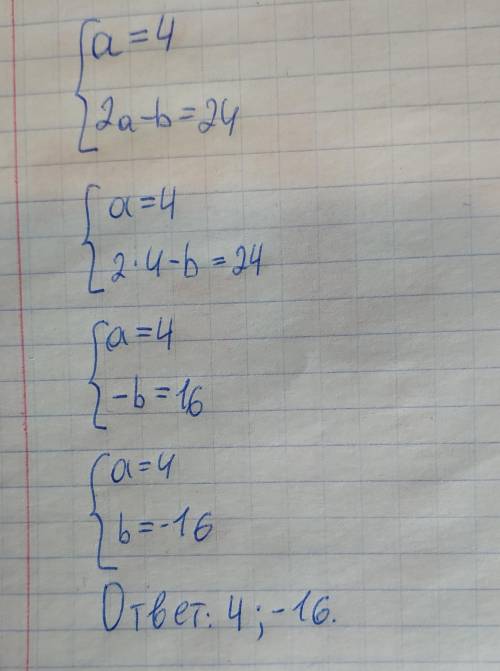 a=4
2a-b=24
a=4
2·4-b=24
a=4
-b=16
a=4
b=-16
Ответ: 4;-16.